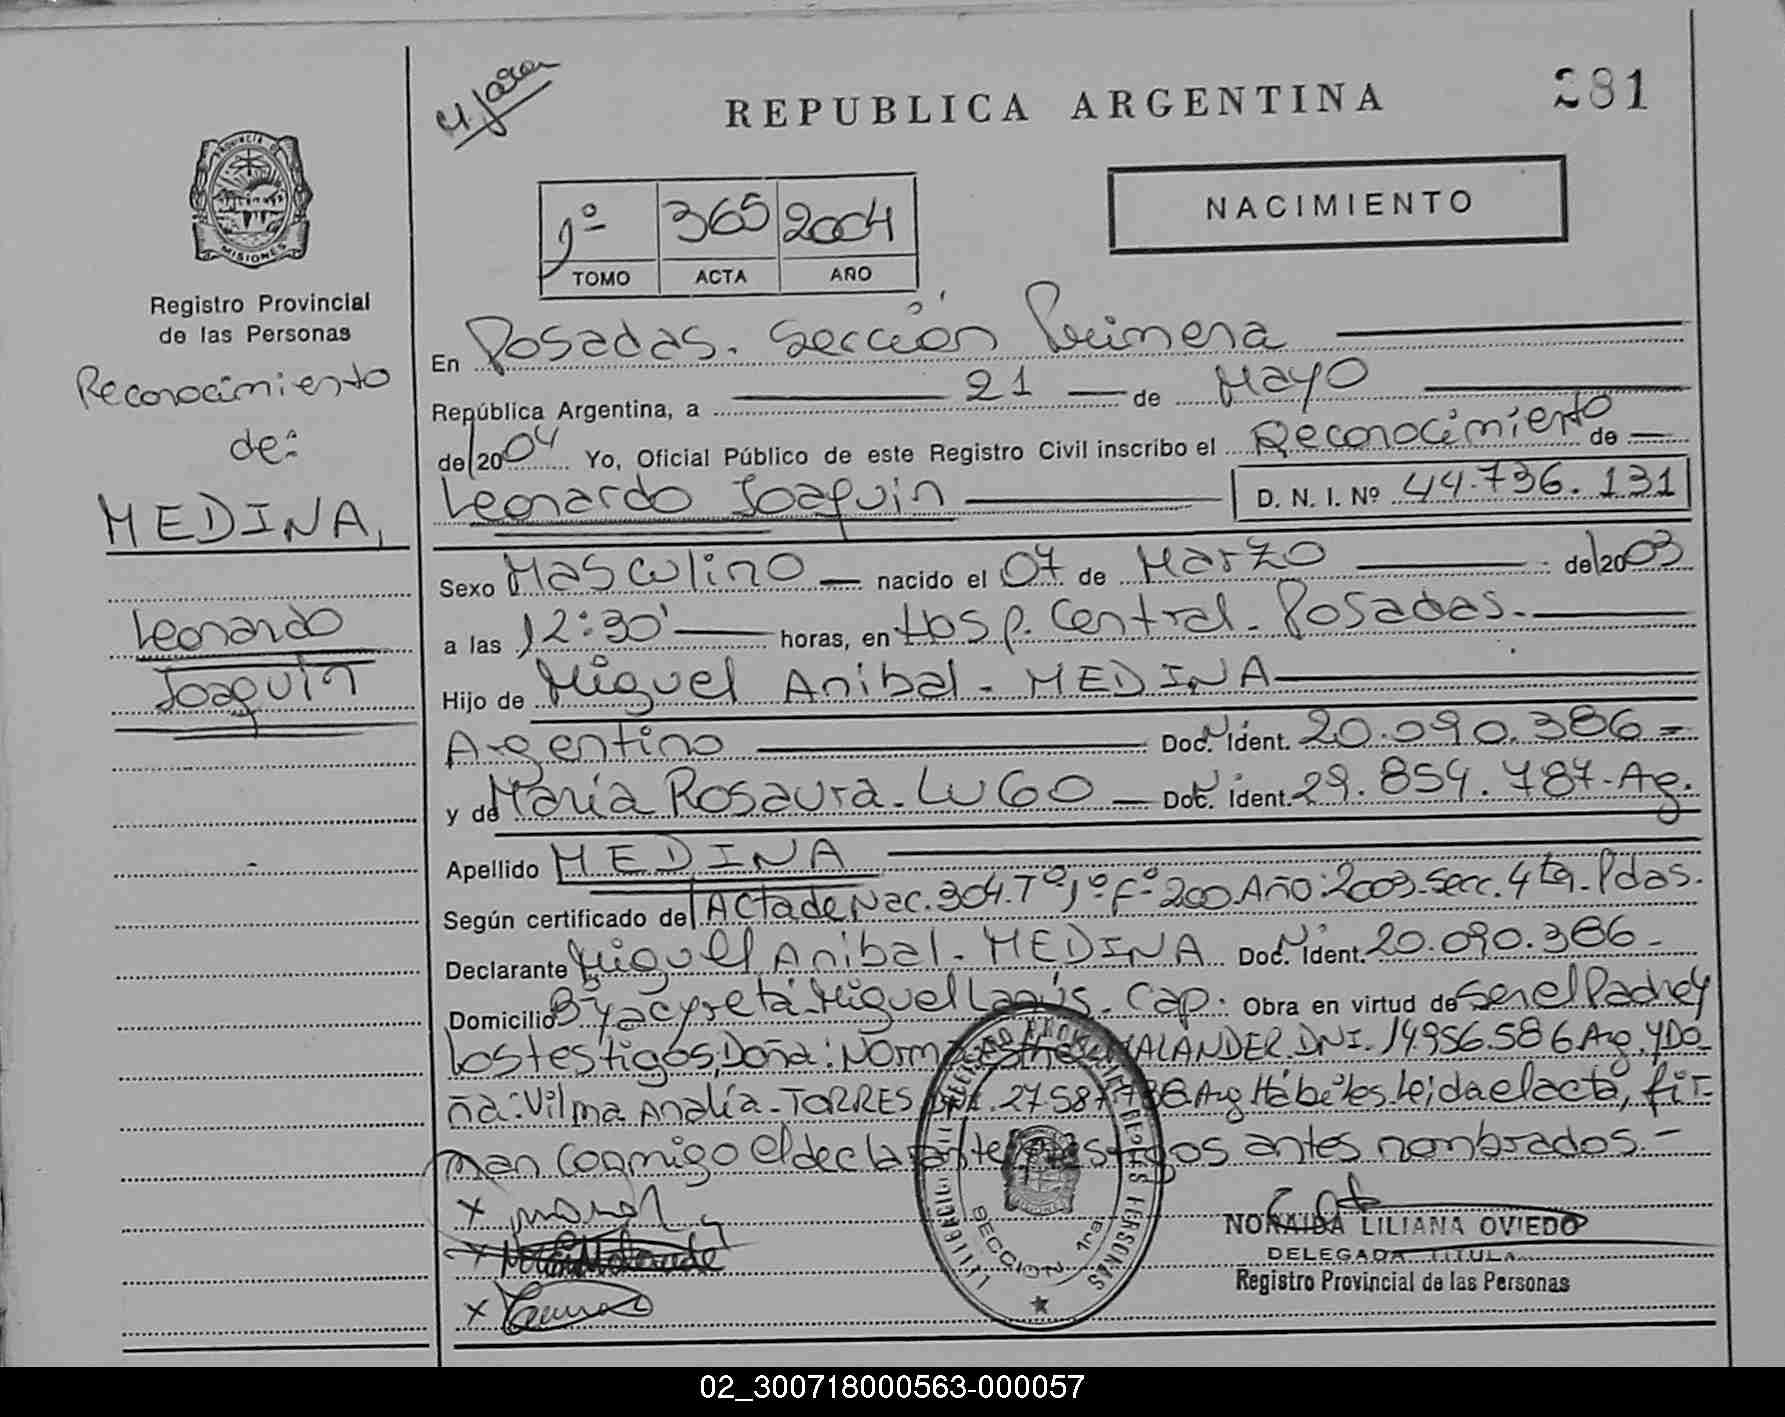 REPUBLICA ARGENTINA
281
1º 365 2004
TOMO ACTA AÑO
NACIMIENTO
PROVINCIA DE
MISIONES
Registro Provincial
de las Personas
Reconocimiento
de:
MEDINA,
Leonardo
Joaquin
En Posadas. Sección Primera
República Argentina, a 21 de Mayo
de 2004 Yo, Oficial Público de este Registro Civil inscribo el Reconocimiento de
Leonardo Joaquin D. N. I. Nº 44.736.131
Sexo Masculino nacido el 07 de Marzo de 2003
a las 12:30' horas, en Hosp. Central. Posadas.
Hijo de Miguel Anibal. MEDINA
Argentino Doc. Ident. 20.090.386
y de María Rosaura. LUGO Doc. Ident. 29.854.787. Ag.
Apellido MEDINA
Según certificado de Acta de Nac. 304. Tº 1º Fº 200. Año: 2003. Secc. 4ta. Pdas.
Declarante Miguel Anibal. MEDINA Doc. Ident. 20.090.386
Domicilio Bº Yacyretá. Miguel Lanús. Cap. Obra en virtud de Ser el Padre y
los testigos, Doña: Norma MALANDER. DNI. 14.956.586 Arg. y Do
ña: Vilma Analía. TORRES DNI. Arg Hábiles Leida el acta, fir
man conmigo el declarante testigos antes nombrados.
REGISTRO PROVINCIAL DE LAS PERSONAS
SECCION 1ra
NORAIDA LILIANA OVIEDO
DELEGADA TITULAR
Registro Provincial de las Personas
02_300718000563-000057